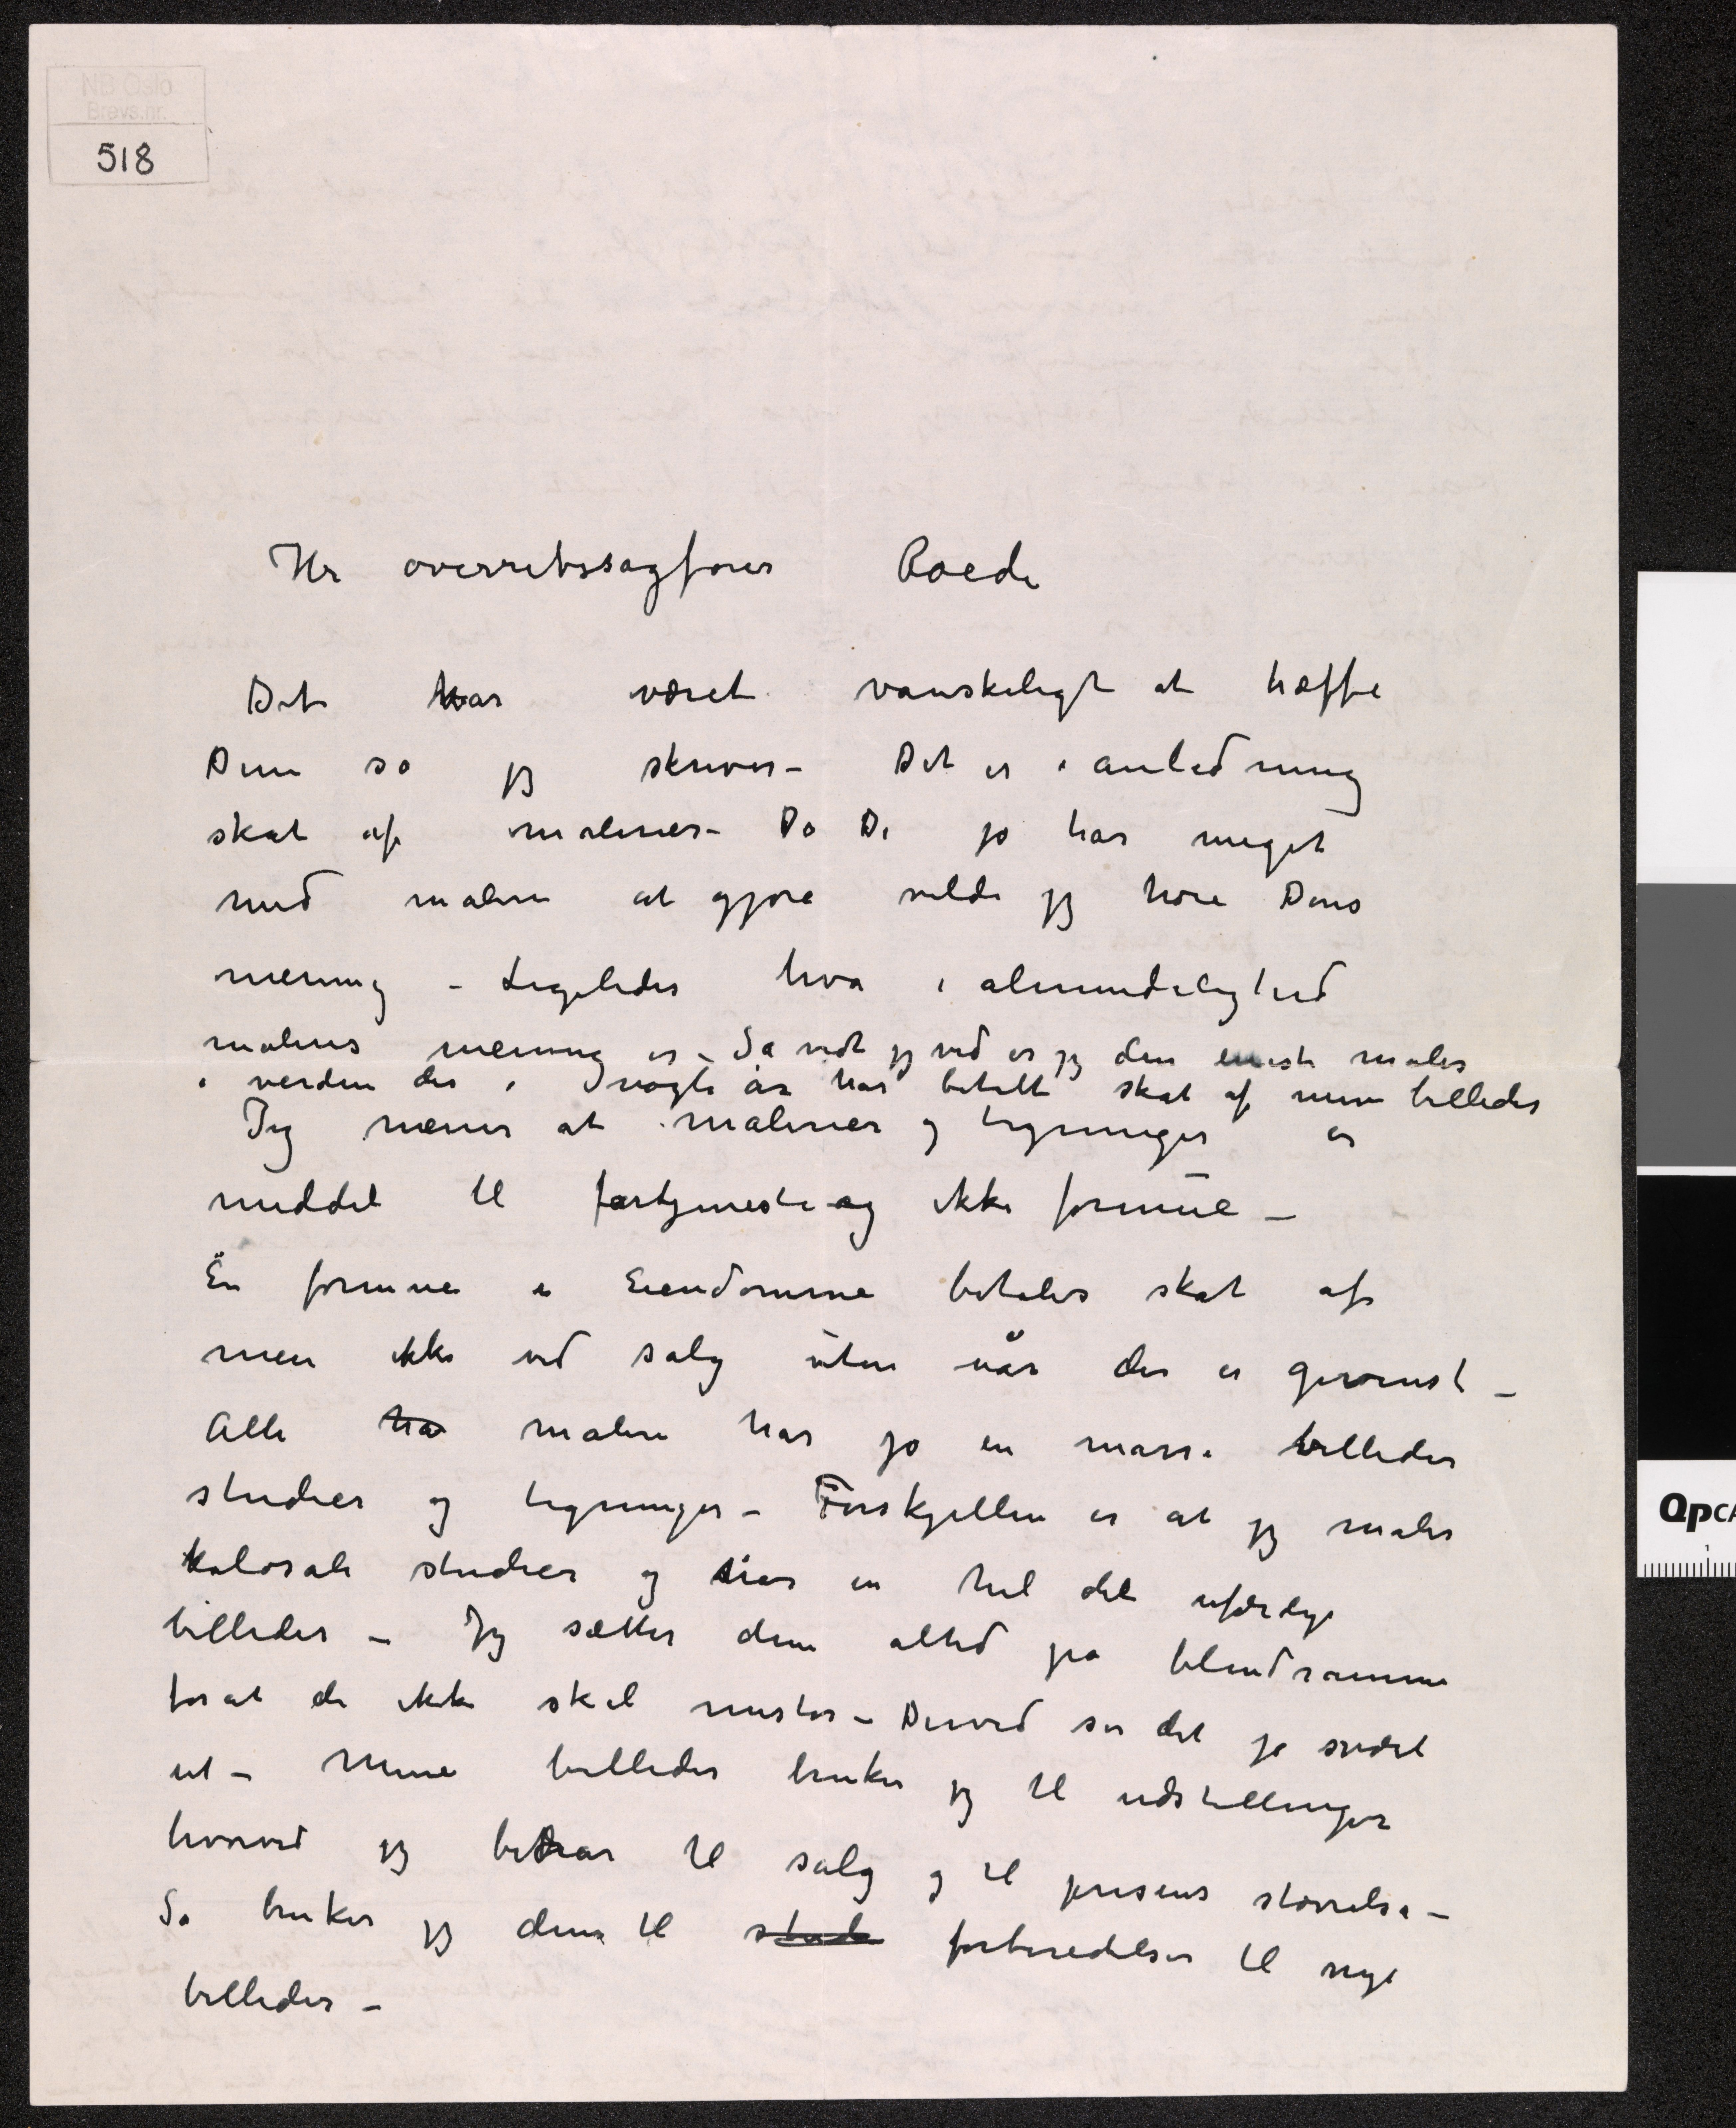 NB Oslo
Brevs.nr.
518
Hr overretssagfører Roede
Det har været vanskeligt at træffe
Dem så jeg skriver – Det er i anledning
skat af malerier – Da De jo har meget
med malere at gjøre vilde jeg høre Deres
mening – Ligeledes hva i almindelighed
maleres mening er – Så vidt jeg ved er jeg den eneste maler
i verden der i nogle år har betalt skat af mine billeder
Jeg mener at malerier og tegninger er
middel til fortjeneste og ikke formue –
En formue i Eiendomme betales skat af
men ikke ved salg uten når der er gevinst –
Alle ha malere har jo en masse billeder
studier og tegninger – Forskjellen er at jeg maler
kolosale studier og har en hel del uferdige
billeder – Jeg sætter dem altid på blindramme
forat de ikke skal mistes – Derved ser det jo svært
ut – Mine billeder bruker jeg til udstillinger
hvorved jeg bidrar til salg og til prisens størrelse –
Så bruker jeg dem til stude forberedelser til nye
billeder –